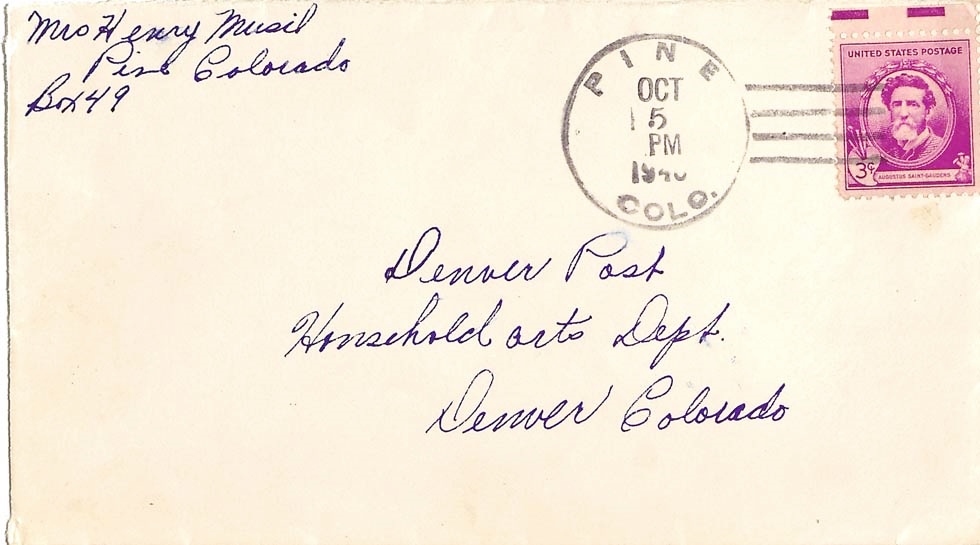 Mrs Henry Musil
Pine Colorado
Box 49
PINE
OCT
15
PM
1940
COLO.
UNITED STATES POSTAGE
3¢
AUGUSTUS SAINT-GAUDENS
Denver Post
Household arts Dept.
Denver Colorado